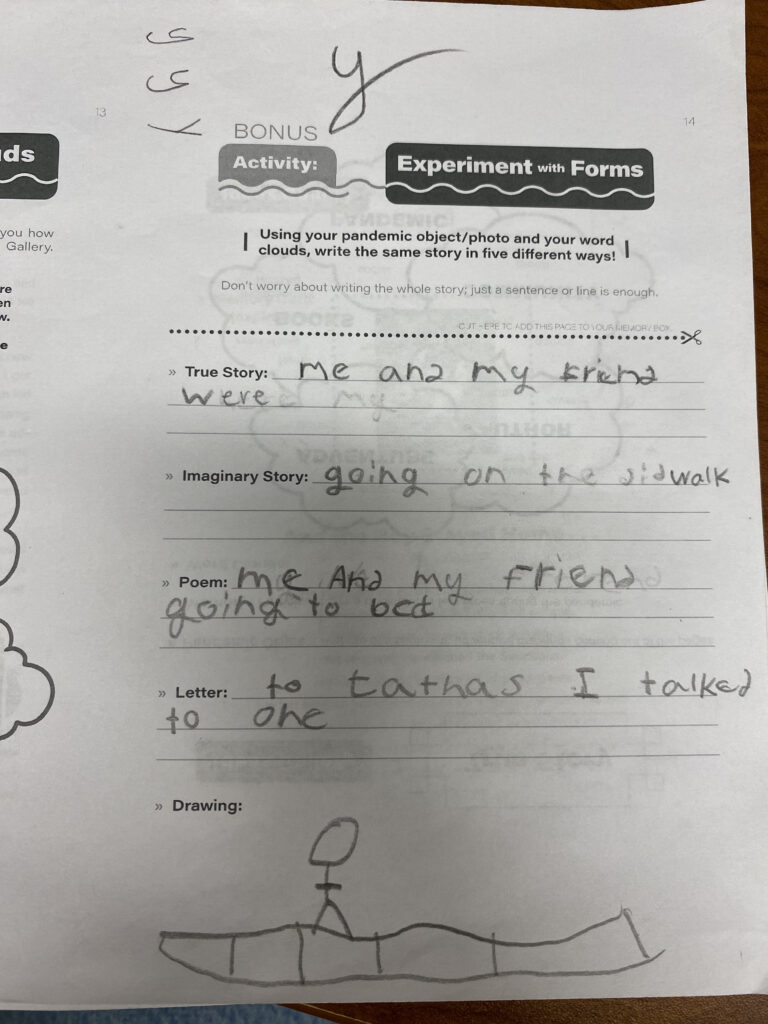 y
13
14
ds
BONUS
Activity:
Experiment with Forms
you how
Gallery.
re
en
w.
e
Using your pandemic object/photo and your word
clouds, write the same story in five different ways!
Don't worry about writing the whole story; just a sentence or line is enough.
CUT HERE TO ADD THIS PAGE TO YOUR MEMORY BOX
» True Story: me and my friend
were my
» Imaginary Story: going on the sidwalk
» Poem: me And my Friend
going to bed
» Letter: to tathas I talked
to one
» Drawing: